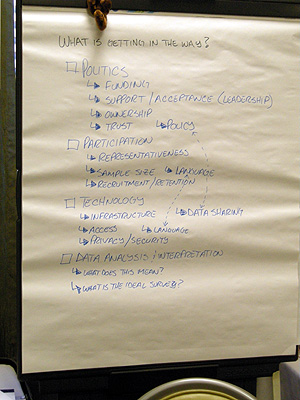 WHAT IS GETTING IN THE WAY?
POLITICS
FUNDING
SUPPORT/ACCEPTANCE (LEADERSHIP)
OWNERSHIP
TRUST POLICY
PARTICIPATION
REPRESENTATIVENESS
SAMPLE SIZE LANGUAGE
RECRUITMENT/RETENTION
TECHNOLOGY
INFRASTRUCTURE DATA SHARING
ACCESS LANGUAGE
PRIVACY/SECURITY
DATA ANALYSIS INTERPRETATION
WHAT DOES THIS MEAN?
WHAT IS THE IDEAL SURVEY?